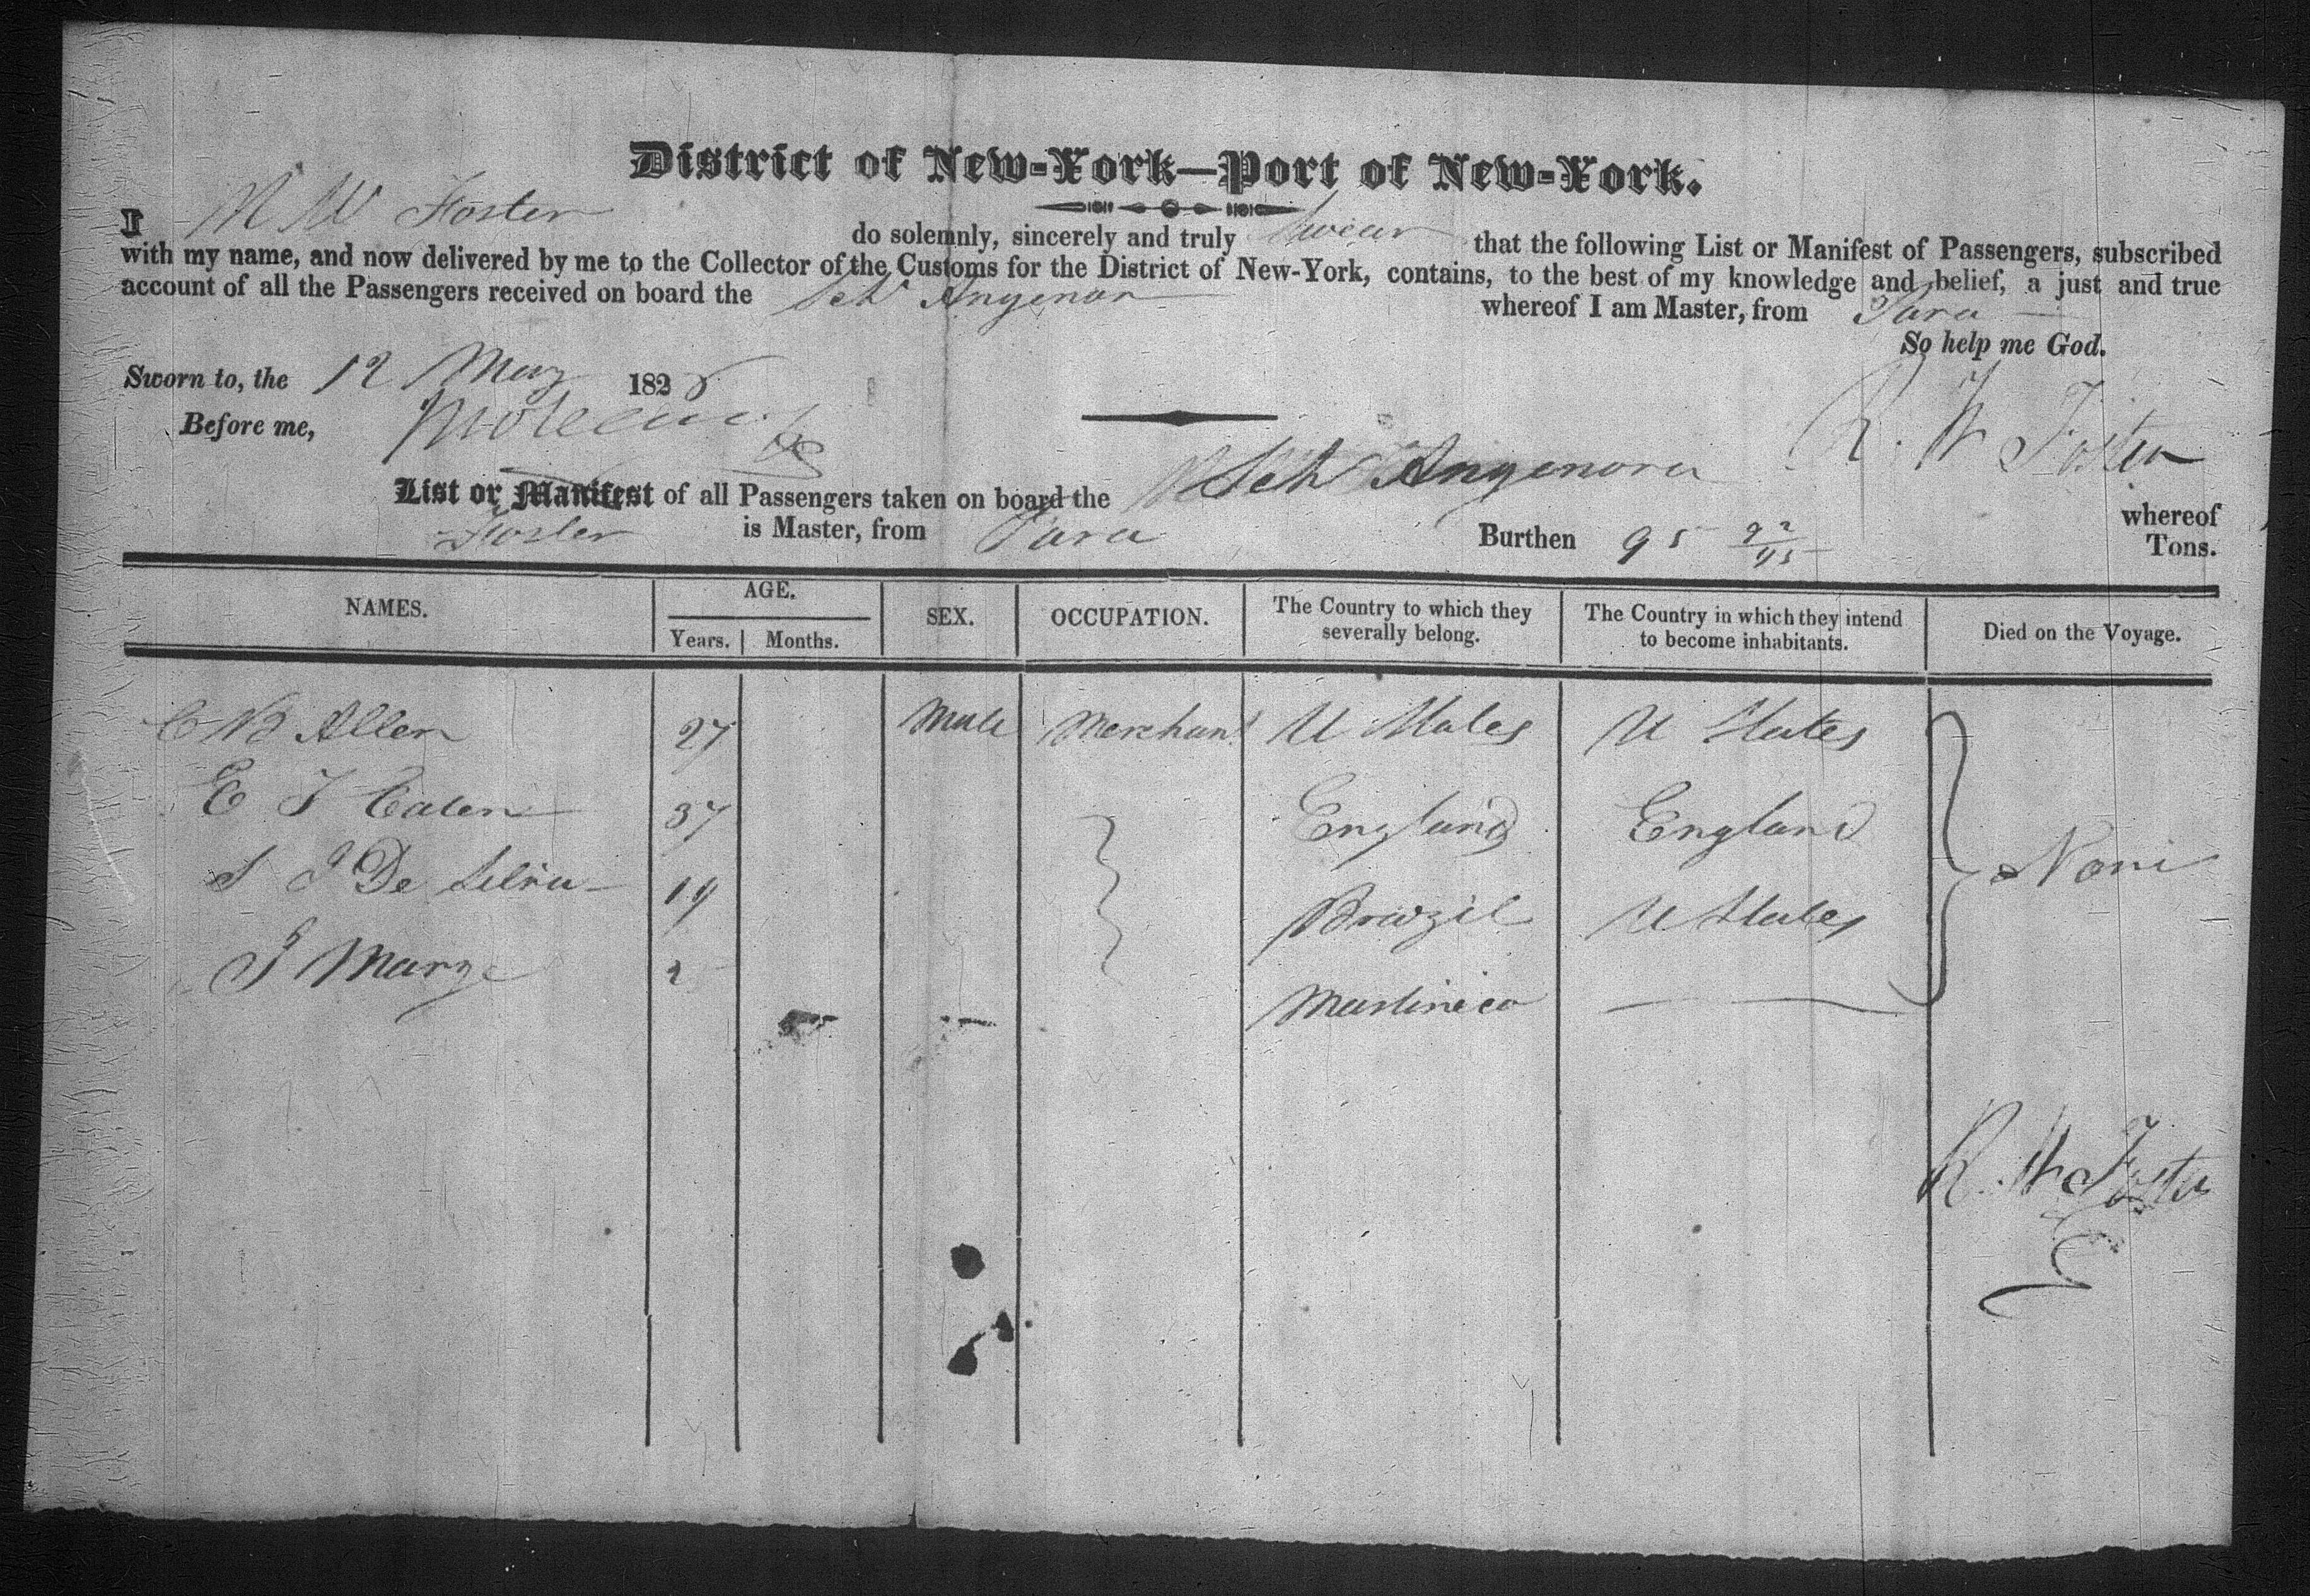 District of New-York—Port of New-York.
I R W Foster do solemnly, sincerely and truly Swear that the following List or Manifest of Passengers, subscribed
with my name, and now delivered by me to the Collector of the Customs for the District of New-York, contains, to the best of my knowledge and belief, a just and true
account of all the Passengers received on board the Sch Angenor whereof I am Master, from Para
So help me God.
Sworn to, the 12 May 1828
Before me,
R. W Foster
List or Manifest of all Passengers taken on board the Sch Angenora whereof
Foster is Master, from Para Burthen 95 22/95 Tons.
NAMES. AGE. Years. Months. SEX. OCCUPATION. The Country to which they severally belong. The Country in which they intend to become inhabitants. Died on the Voyage.
C B Allen 27 Male Merchant U States U States
E T 37 England England
S J De Silva 19 Brazil U States None
J Martinico
R. W Foster